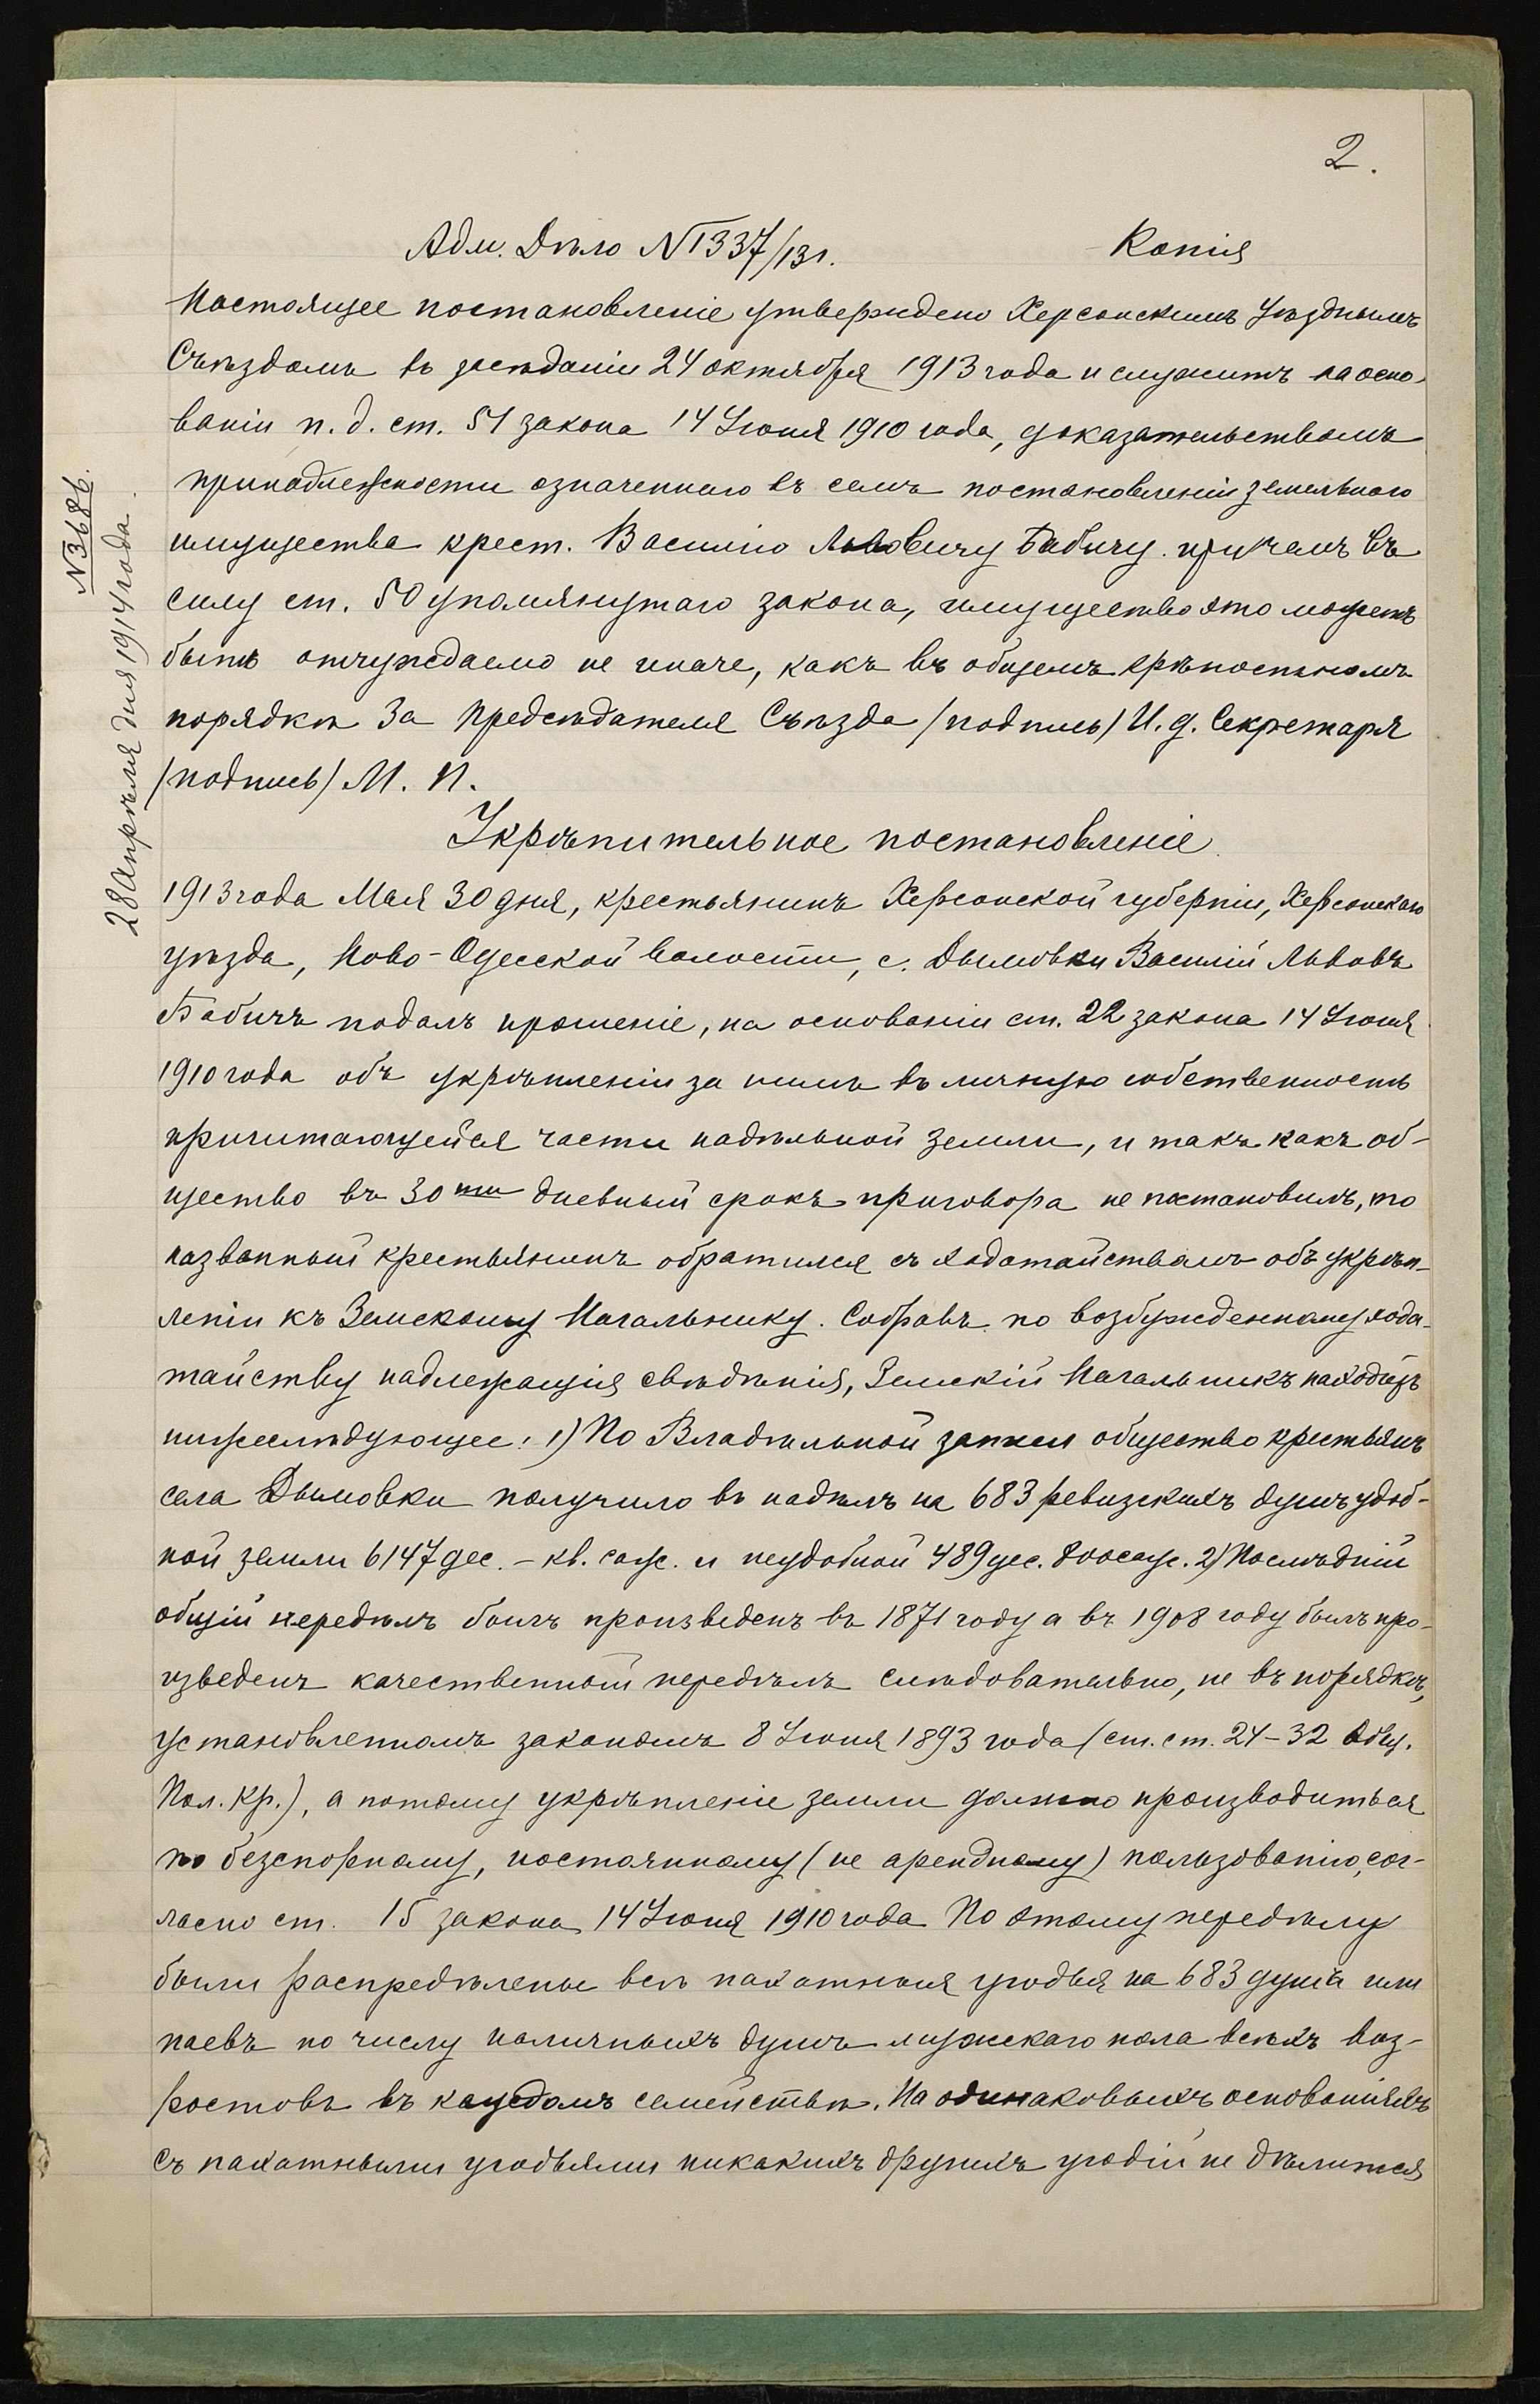 2.
Адм. Дѣло № 1337/13 г.
Копія
Настоящее постановленіе утверждено Херсонскимъ Уѣзднымъ
Съѣздомъ въ засѣданіи 24 октября 1913 года и служитъ на осно-
ваніи п. д. ст. 51 закона 14 Іюня 1910 года, доказательствомъ
принадлежности означеннаго въ семъ постановленіи земельнаго
имущества крест. Василію Львовичу Бабичу. причемъ въ
силу ст. 50 упомянутаго закона, имущество это можетъ
быть отчуждаемо не иначе, какъ въ общемъ крѣпостномъ
порядкѣ За Предсѣдателя Съѣзда /подпись/ И. д. Секретаря
/подпись/ М. П.
№ 3686.
28 Апрѣля дня 1914 года.
Укрѣпительное постановленіе.
1913 года Мая 30 дня, крестьянинъ Херсонской губерніи, Херсонскаго
уѣзда, Ново-Одесской волости, с. Дымовки Василій Львовъ
Бабичъ подалъ прошеніе, на основаніи ст. 22 закона 14 Іюня
1910 года объ укрѣпленіи за нимъ въ личную собственность
причитающейся части надѣльной земли, и такъ какъ об-
щество въ 30ти дневный срокъ приговора не постановилъ, то
названный крестьянинъ обратился съ ходатайствомъ объ укрѣп-
леніи къ Земскому Начальнику. Собравъ по возбужденному хода-
тайству надлежащія свѣдѣнія, Земскій Начальникъ находитъ
нижеслѣдующее: 1) По Владѣльной записи общество крестьянъ
села Дымовки получило въ надѣлъ на 683 ревизскихъ душъ удоб-
ной земли 6147 дес. – кв. саж. и неудобной 489 дес. 800 саж. 2) Послѣдній
общій передѣлъ былъ произведенъ въ 1871 году а въ 1908 году былъ про-
изведенъ качественный передѣлъ слѣдовательно, не въ порядкѣ,
установленномъ закономъ 8 Іюня 1893 года (ст. ст. 24–32 Общ.
Пол. Кр.), а потому укрѣпленіе земли должно производиться
по безспорному, постоянному (не арендному) пользованію, сог-
ласно ст. 15 закона 14 Іюня 1910 года По этому передѣлу
были распредѣлены всѣ пахатныя угодья на 683 душъ или
паевъ по числу наличныхъ душъ мужскаго пола всѣхъ воз-
ростовъ въ каждомъ семействѣ. На одинаковыхъ основаніяхъ
съ пахатными угодьями никакихъ другихъ угодій не дѣлится